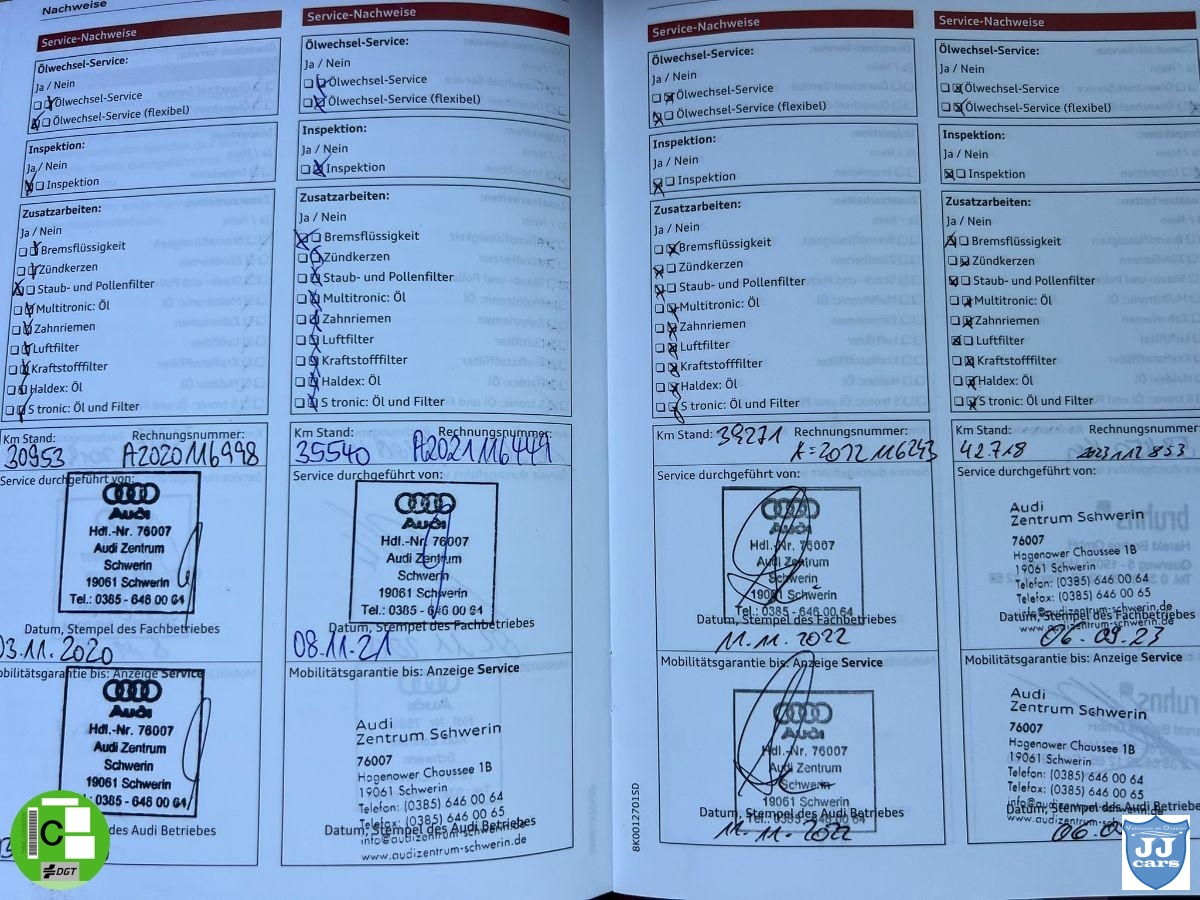 Nachweise
Service-Nachweise
Ölwechsel-Service:
Ja / Nein
Ölwechsel-Service
Ölwechsel-Service (flexibel)
Inspektion:
Ja / Nein
Inspektion
Zusatzarbeiten:
Ja / Nein
Bremsflüssigkeit
Zündkerzen
Staub- und Pollenfilter
Multitronic: Öl
Zahnriemen
Luftfilter
Kraftstofffilter
Haldex: Öl
S tronic: Öl und Filter
Km Stand: Rechnungsnummer:
30953 A2020116998
Service durchgeführt von:
Audi
Hdl.-Nr. 76007
Audi Zentrum
Schwerin
19061 Schwerin
Tel.: 0385 - 646 00 64
Datum, Stempel des Fachbetriebes
03.11.2020
Mobilitätsgarantie bis: Anzeige Service
Audi
Hdl.-Nr. 76007
Audi Zentrum
Schwerin
19061 Schwerin
Tel.: 0385 - 646 00 64
des Audi Betriebes
C
DGT
Service-Nachweise
Ölwechsel-Service:
Ja / Nein
Ölwechsel-Service
Ölwechsel-Service (flexibel)
Inspektion:
Ja / Nein
Inspektion
Zusatzarbeiten:
Ja / Nein
Bremsflüssigkeit
Zündkerzen
Staub- und Pollenfilter
Multitronic: Öl
Zahnriemen
Luftfilter
Kraftstofffilter
Haldex: Öl
S tronic: Öl und Filter
Km Stand: Rechnungsnummer:
35540 A2021116441
Service durchgeführt von:
Audi
Hdl.-Nr. 76007
Audi Zentrum
Schwerin
19061 Schwerin
Tel.: 0385 - 646 00 64
Datum, Stempel des Fachbetriebes
08.11.21
Mobilitätsgarantie bis: Anzeige Service
Audi
Zentrum Schwerin
76007
Hagenower Chaussee 1B
19061 Schwerin
Telefon: (0385) 646 00 64
Telefax: (0385) 646 00 65
Datum, Stempel des Audi Betriebes
info@audizentrum-schwerin.de
www.audizentrum-schwerin.de
Service-Nachweise
Ölwechsel-Service:
Ja / Nein
Ölwechsel-Service
Ölwechsel-Service (flexibel)
Inspektion:
Ja / Nein
Inspektion
Zusatzarbeiten:
Ja / Nein
Bremsflüssigkeit
Zündkerzen
Staub- und Pollenfilter
Multitronic: Öl
Zahnriemen
Luftfilter
Kraftstofffilter
Haldex: Öl
S tronic: Öl und Filter
Km Stand: 39271 Rechnungsnummer:
K=2022116243
Service durchgeführt von:
Audi
Hdl.-Nr. 76007
Audi Zentrum
Schwerin
19061 Schwerin
Tel.: 0385 - 646 00 65
Datum, Stempel des Fachbetriebes
11.11.2022
Mobilitätsgarantie bis: Anzeige Service
Audi
Hdl.-Nr. 76007
Audi Zentrum
Schwerin
19061 Schwerin
Datum, Stempel des Audi Betriebes
11.11.2022
8K0012701SD
Service-Nachweise
Ölwechsel-Service:
Ja / Nein
Ölwechsel-Service
Ölwechsel-Service (flexibel)
Inspektion:
Ja / Nein
Inspektion
Zusatzarbeiten:
Ja / Nein
Bremsflüssigkeit
Zündkerzen
Staub- und Pollenfilter
Multitronic: Öl
Zahnriemen
Luftfilter
Kraftstofffilter
Haldex: Öl
S tronic: Öl und Filter
Km Stand: Rechnungsnummer:
42.718 2023112853
Service durchgeführt von:
Audi
Zentrum Schwerin
76007
Hagenower Chaussee 1B
19061 Schwerin
Telefon: (0385) 646 00 64
Telefax: (0385) 646 00 65
info@audizentrum-schwerin.de
Datum, Stempel des Fachbetriebes
www.audizentrum-schwerin.de
06.09.23
Mobilitätsgarantie bis: Anzeige Service
Audi
Zentrum Schwerin
76007
Hagenower Chaussee 1B
19061 Schwerin
Telefon: (0385) 646 00 64
Telefax: (0385) 646 00 65
Datum, Stempel des Audi Betriebes
JJ
cars